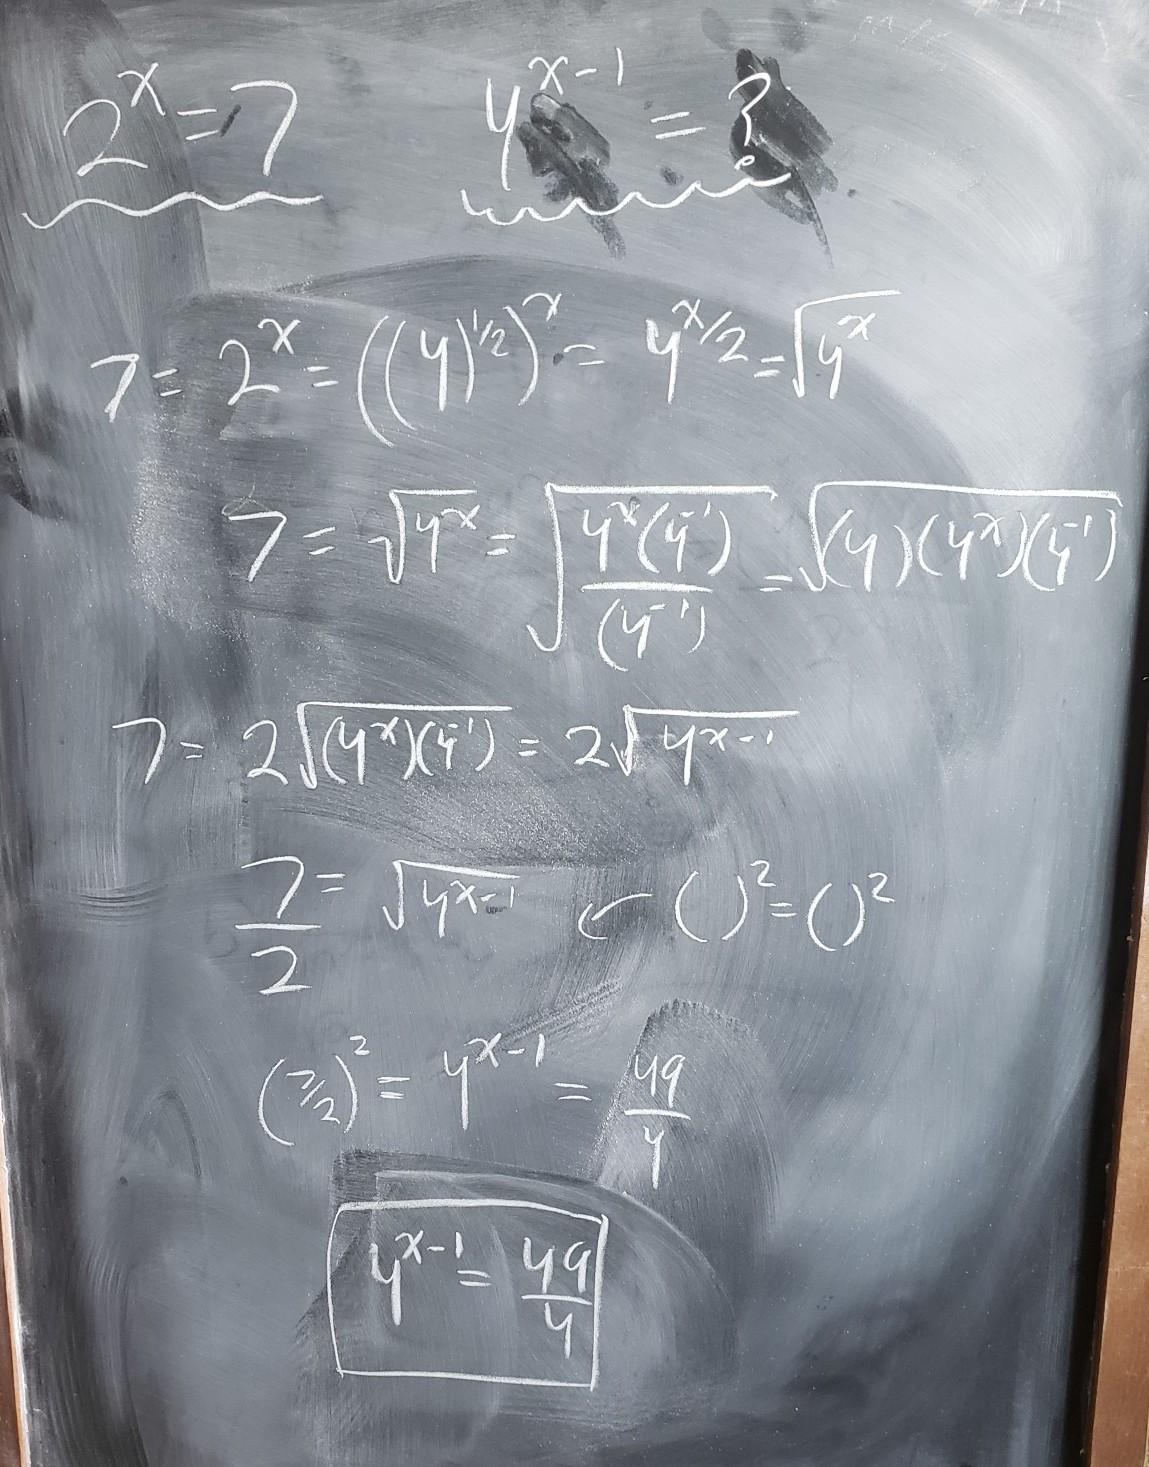 2^x = 7    4^{x-1} = ?
7 = 2^x = ((4)^{1/2})^x = 4^{x/2} = √(4^x)
7 = √(4^x) = √(4^x(4^{-1})/(4^{-1})) = √((4)(4^x)(4^{-1}))
7 = 2√((4^x)(4^{-1})) = 2√(4^{x-1})
7/2 = √(4^{x-1}) ← ( )^2 = ( )^2
(7/2)^2 = 4^{x-1} = 49/4
4^{x-1} = 49/4